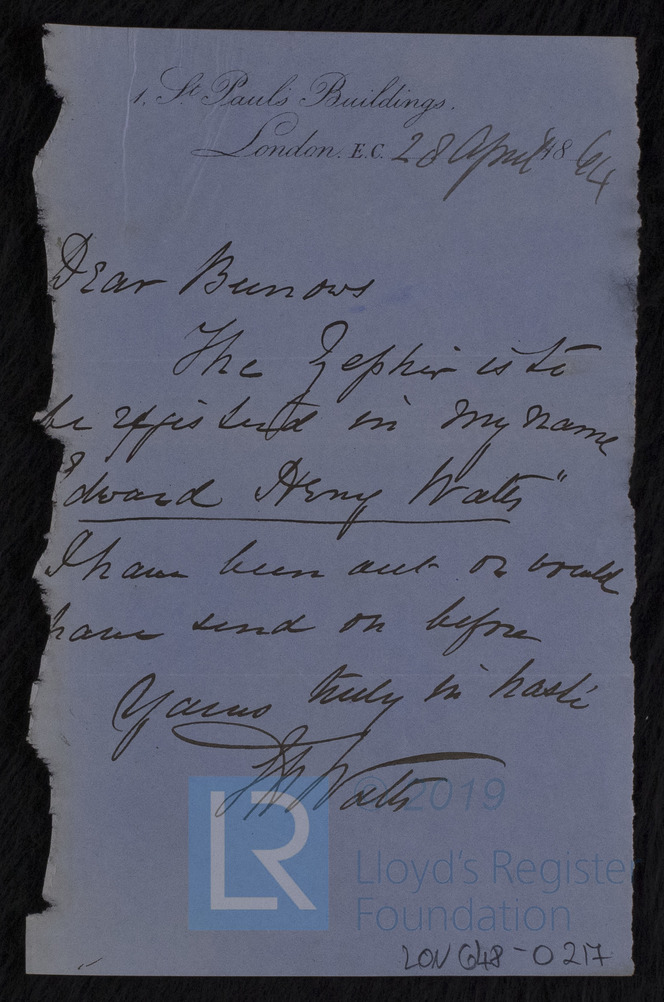 1, St. Paul's Buildings.
London. E.C. 28 April 1864
Dear Burrows
The Zephir is to
be registered in my name
"Edward Henry Watts"
I have been out or would
have send on before
Yours truly in haste
E H Watts
© 2019
LR
Lloyd's Register
Foundation
LON 648-0217